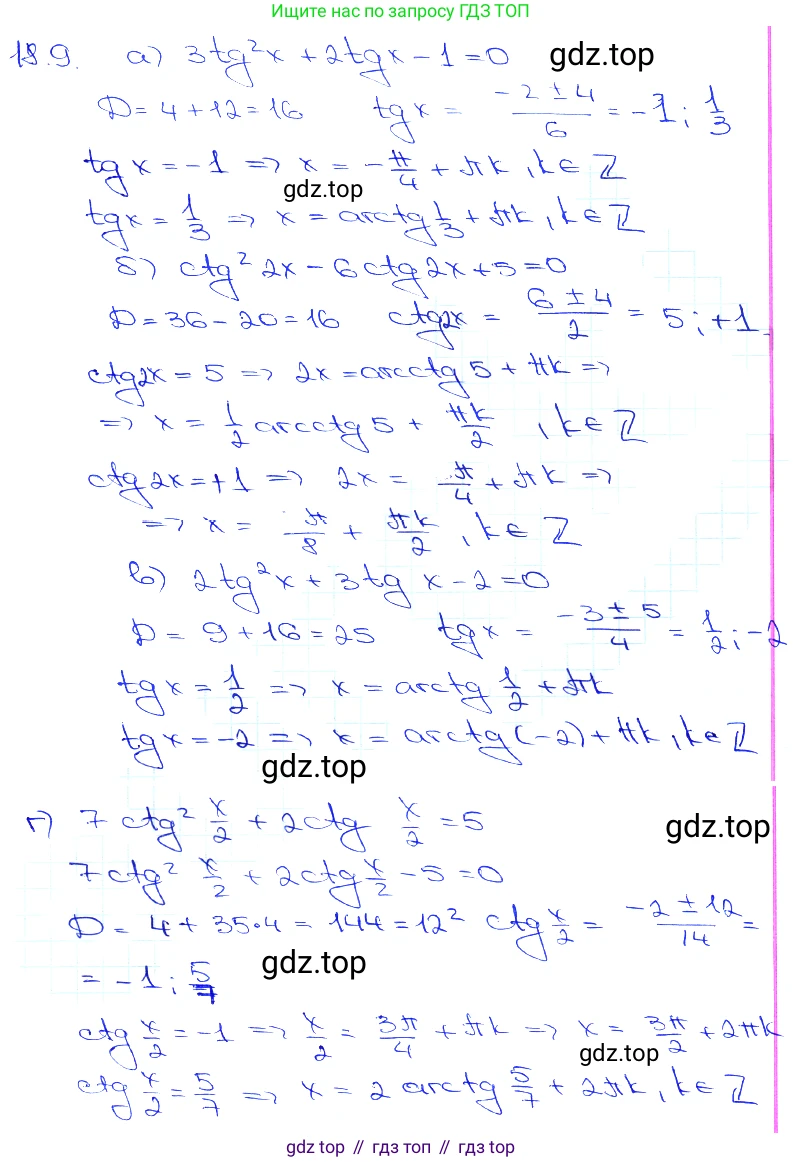 Ищите нас по запросу ГДЗ ТОП
18.9. а) 3tg²x + 2tgx - 1 = 0 gdz.top
D = 4 + 12 = 16 tgx = (-2 ± 4)/6 = -1; 1/3
tgx = -1 => x = -π/4 + πk, k∈Z
gdz.top
tgx = 1/3 => x = arctg 1/3 + πk, k∈Z
б) ctg²2x - 6ctg2x + 5 = 0
D = 36 - 20 = 16 ctg2x = (6 ± 4)/2 = 5; +1.
ctg2x = 5 => 2x = arcctg5 + πk =>
=> x = 1/2 arcctg5 + πk/2, k∈Z
ctg2x = +1 => 2x = π/4 + πk =>
=> x = π/8 + πk/2, k∈Z
в) 2tg²x + 3tgx - 2 = 0
D = 9 + 16 = 25 tgx = (-3 ± 5)/4 = 1/2; -2
tgx = 1/2 => x = arctg 1/2 + πk
tgx = -2 => x = arctg(-2) + πk, k∈Z
gdz.top
г) 7ctg² x/2 + 2ctg x/2 = 5 gdz.top
7ctg² x/2 + 2ctg x/2 - 5 = 0
D = 4 + 35·4 = 144 = 12² ctg x/2 = (-2 ± 12)/14 =
= -1; 5/7 gdz.top
ctg x/2 = -1 => x/2 = 3π/4 + πk => x = 3π/2 + 2πk
gdz.top
ctg x/2 = 5/7 => x = 2 arcctg 5/7 + 2πk, k∈Z
gdz top // гдз топ // gdz.top